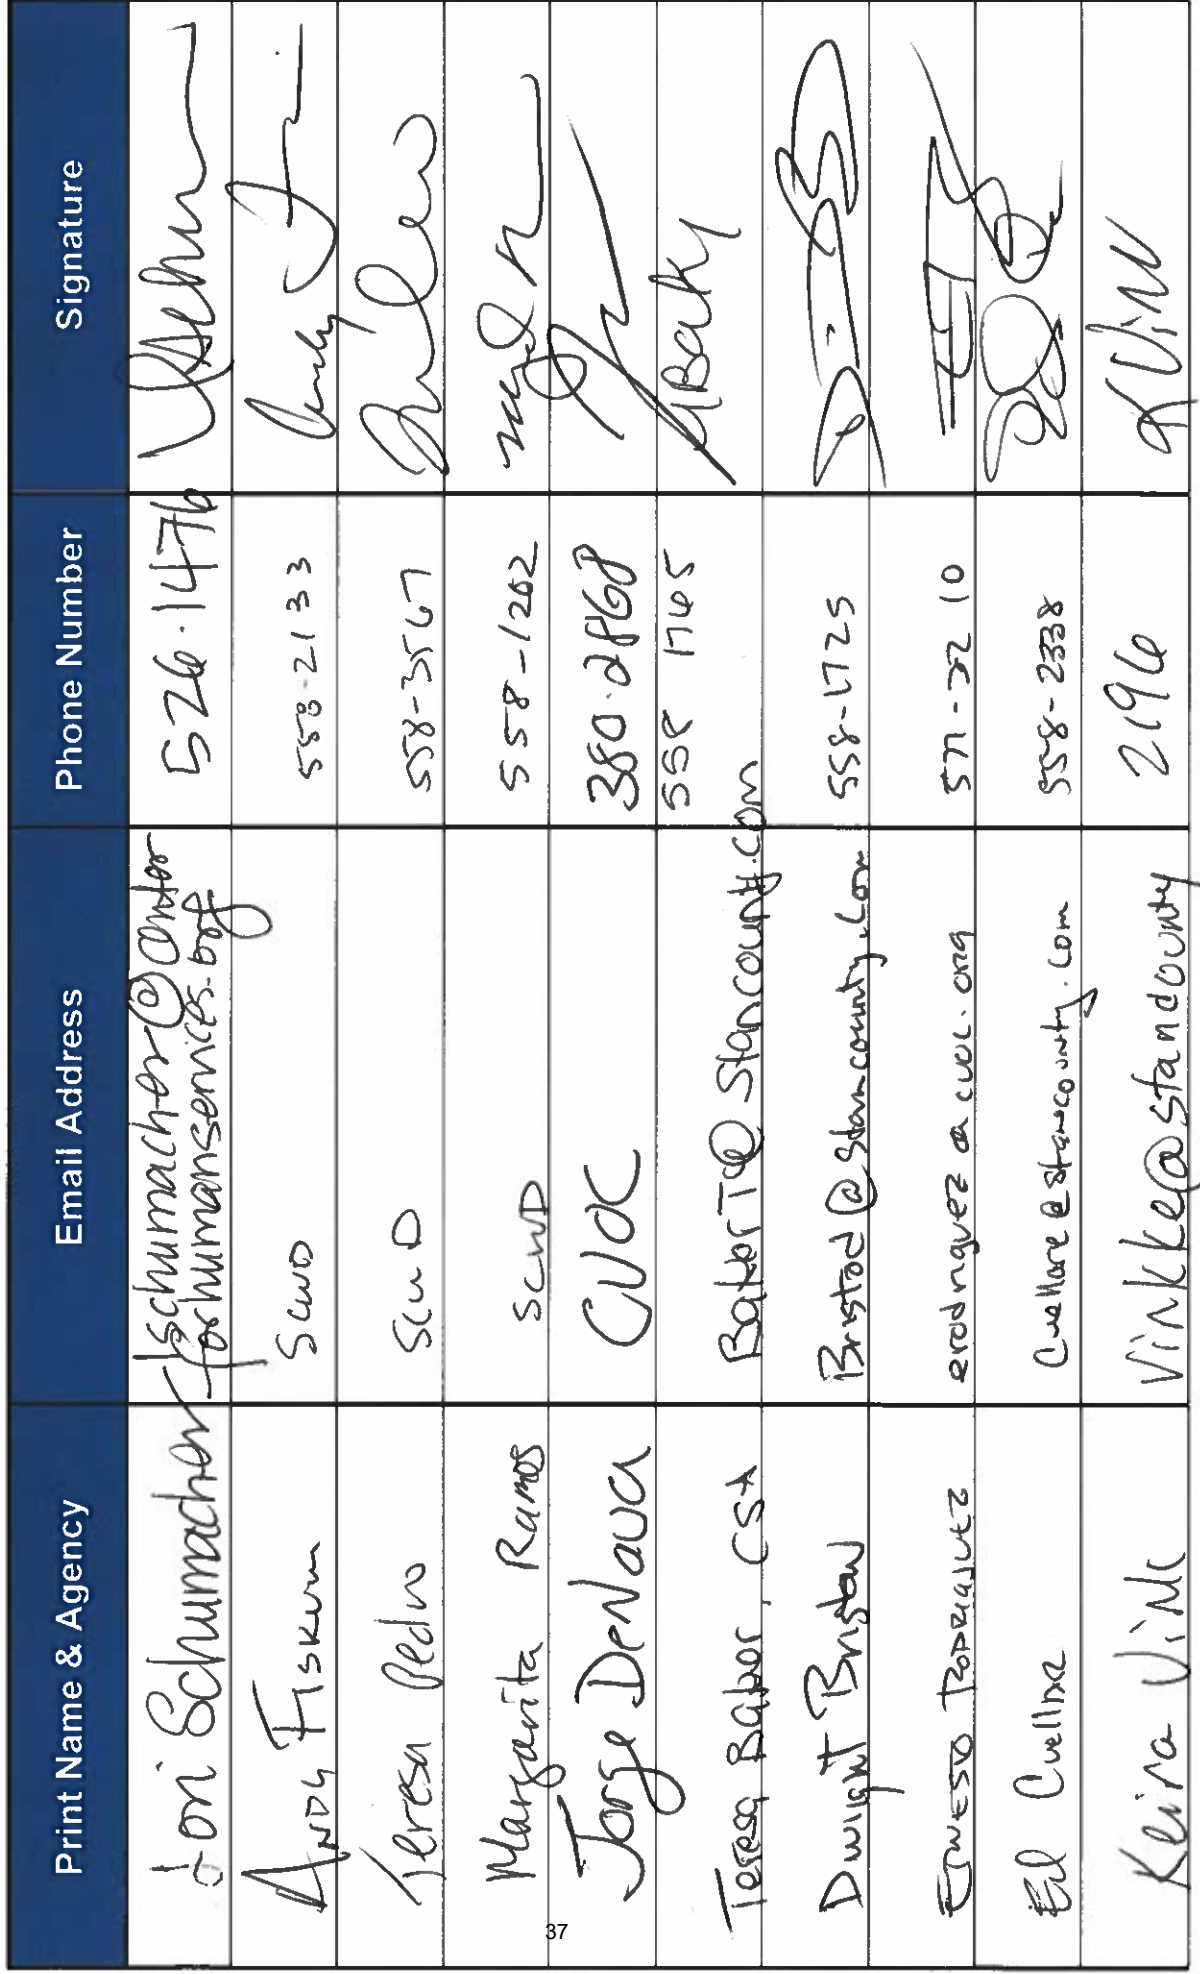 Print Name & Agency Email Address Phone Number Signature
Lori Schumacher lschumacher@center
forhumanservices.org 526.1476
Andy Fiskum SCWD 558-2133
Teresa Pedro SCWD 558-3567
Margarita Ramos SCWD 558-1202
Jorge DeNava CVOC 380.2868
Teresa Baker, CSA BakerT@stancounty.com 558 1765 TBaker
Dwight Bristow Bristod@stancounty.com 558-1725
Ernesto Rodriguez erodriguez@cvoc.org 577-3210
Ed Cuellar Cuellare@stancounty.com 558-2338
Keira Vink Vinkke@stancounty 2196 K Vink
37